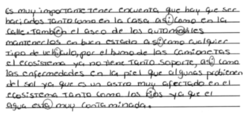 Es muy importante tener encuenta que hay que ser
baricados tanto como en la casa así como en la
calle. También el aseo de los automóbiles
mantenerlos en bien estado así como cualquier
tipo de vehículo, por el humo de las camionetas
el ecosistema ya no tiene tanto soporte, así como
las enfermedades en la piel que algunas probienen
del sol ya que es un astro muy afectado en el
ecosistema tanto como los ríos ya que el
agua está muy contaminada.